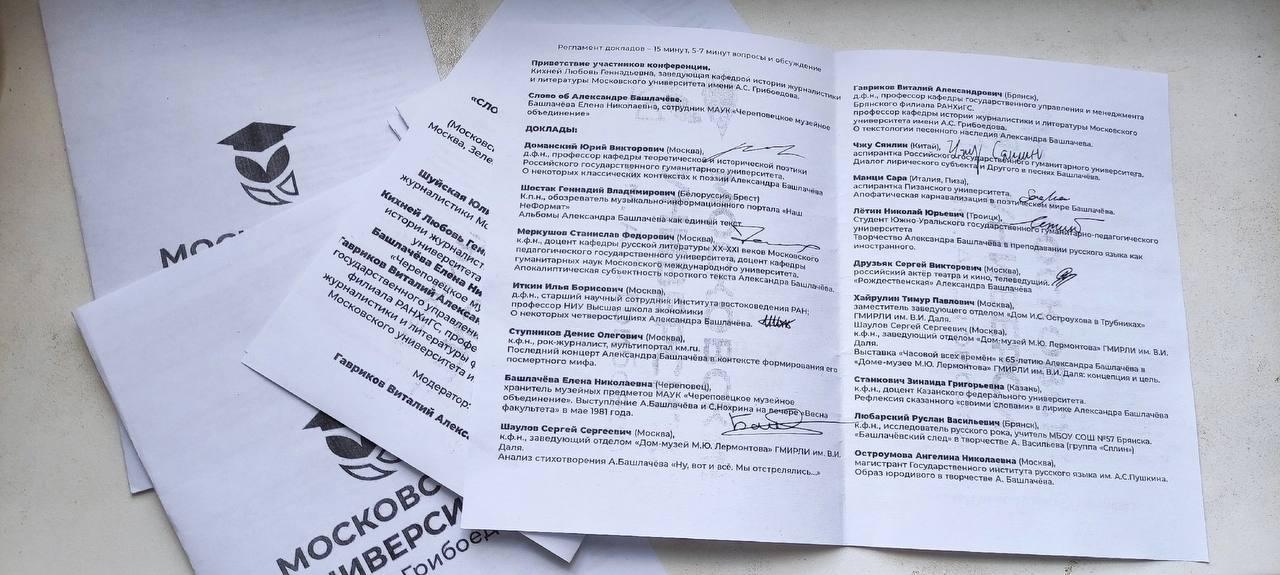 МОСКОВ
«СЛО
(Московс
Москва, Зеле
Шуйская Юли
журналистики Мо
Кихней Любовь Генн
истории журналист
университета
Башлачёва Елена Ни
«Череповецкое му
Гавриков Виталий Алексан
государственного управлени
филиала РАНХиГС, профе
журналистики и литературы
Московского университета и
Модератор:
Гавриков Виталий Алекс
МОСКОВС
УНИВЕРСИ
Грибоед
Регламент докладов – 15 минут, 5-7 минут вопросы и обсуждение
Приветствие участников конференции.
Кихней Любовь Геннадьевна, заведующая кафедрой истории журналистики
и литературы Московского университета имени А.С. Грибоедова.
Слово об Александре Башлачёве.
Башлачёва Елена Николаевна, сотрудник МАУК «Череповецкое музейное
объединение»
ДОКЛАДЫ:
Доманский Юрий Викторович (Москва),
д.ф.н., профессор кафедры теоретической и исторической поэтики
Российского государственного гуманитарного университета.
О некоторых классических контекстах к поэзии Александра Башлачёва
Шостак Геннадий Владимирович (Белоруссия, Брест)
К.п.н., обозреватель музыкально-информационного портала «Наш
НеФормат»
Альбомы Александра Башлачёва как единый текст.
Меркушов Станислав Федорович (Москва),
к.ф.н., доцент кафедры русской литературы XX-XXI веков Московского
педагогического государственного университета, доцент кафедры
гуманитарных наук Московского международного университета.
Апокалиптическая субъектность короткого текста Александра Башлачёва.
Иткин Илья Борисович (Москва),
д.ф.н., старший научный сотрудник Института востоковедения РАН;
профессор НИУ Высшая школа экономики
О некоторых четверостишиях Александра Башлачева.
Ступников Денис Олегович (Москва),
к.ф.н., рок-журналист, мультипортал км.ru.
Последний концерт Александра Башлачёва в контексте формирования его
посмертного мифа.
Башлачёва Елена Николаевна (Череповец),
хранитель музейных предметов МАУК «Череповецкое музейное
объединение». Выступление А.Башлачева и С.Нохрина на вечере «Весна
факультета» в мае 1981 года.
Шаулов Сергей Сергеевич (Москва),
к.ф.н., заведующий отделом «Дом-музей М.Ю. Лермонтова» ГМИРЛИ им. В.И.
Даля.
Анализ стихотворения А.Башлачёва «Ну, вот и всё. Мы отстрелялись...»
Гавриков Виталий Александрович (Брянск),
д.ф.н., профессор кафедры государственного управления и менеджмента
Брянского филиала РАНХиГС.
профессор кафедры истории журналистики и литературы Московского
университета имени А.С. Грибоедова.
О текстологии песенного наследия Александра Башлачева.
Чжу Сяилин (Китай),
аспирантка Российского государственного гуманитарного университета.
Диалог лирического субъекта и Другого в песнях Башлачёва.
Манци Сара (Италия, Пиза),
аспирантка Пизанского университета.
Апофатическая карнавализация в поэтическом мире Башлачёва.
Лётин Николай Юрьевич (Троицк),
Студент Южно-Уральского государственного гуманитарно-педагогического
университета
Творчество Александра Башлачёва в преподавании русского языка как
иностранного.
Друзьяк Сергей Викторович (Москва),
российский актёр театра и кино, телеведущий.
«Рождественская» Александра Башлачёва
Хайрулин Тимур Павлович (Москва),
заместитель заведующего отделом «Дом И.С. Остроухова в Трубниках»
ГМИРЛИ им. В.И. Даля.
Шаулов Сергей Сергеевич (Москва),
к.ф.н., заведующий отделом «Дом-музей М.Ю. Лермонтова» ГМИРЛИ им. В.И.
Даля.
Выставка «Часовой всех времён» к 65-летию Александра Башлачёва в
«Доме-музее М.Ю. Лермонтова» ГМИРЛИ им. В.И. Даля: концепция и цель.
Станкович Зинаида Григорьевна (Казань),
к.ф.н., доцент Казанского федерального университета.
Рефлексия сказанного «своими словами» в лирике Александра Башлачёва
Любарский Руслан Васильевич (Брянск),
к.ф.н., исследователь русского рока, учитель МБОУ СОШ №57 Брянска.
«Башлачёвский след» в творчестве А. Васильева (группа «Сплин»)
Остроумова Ангелина Николаевна (Москва),
магистрант Государственного института русского языка им. А.С.Пушкина.
Образ юродивого в творчестве А. Башлачёва.